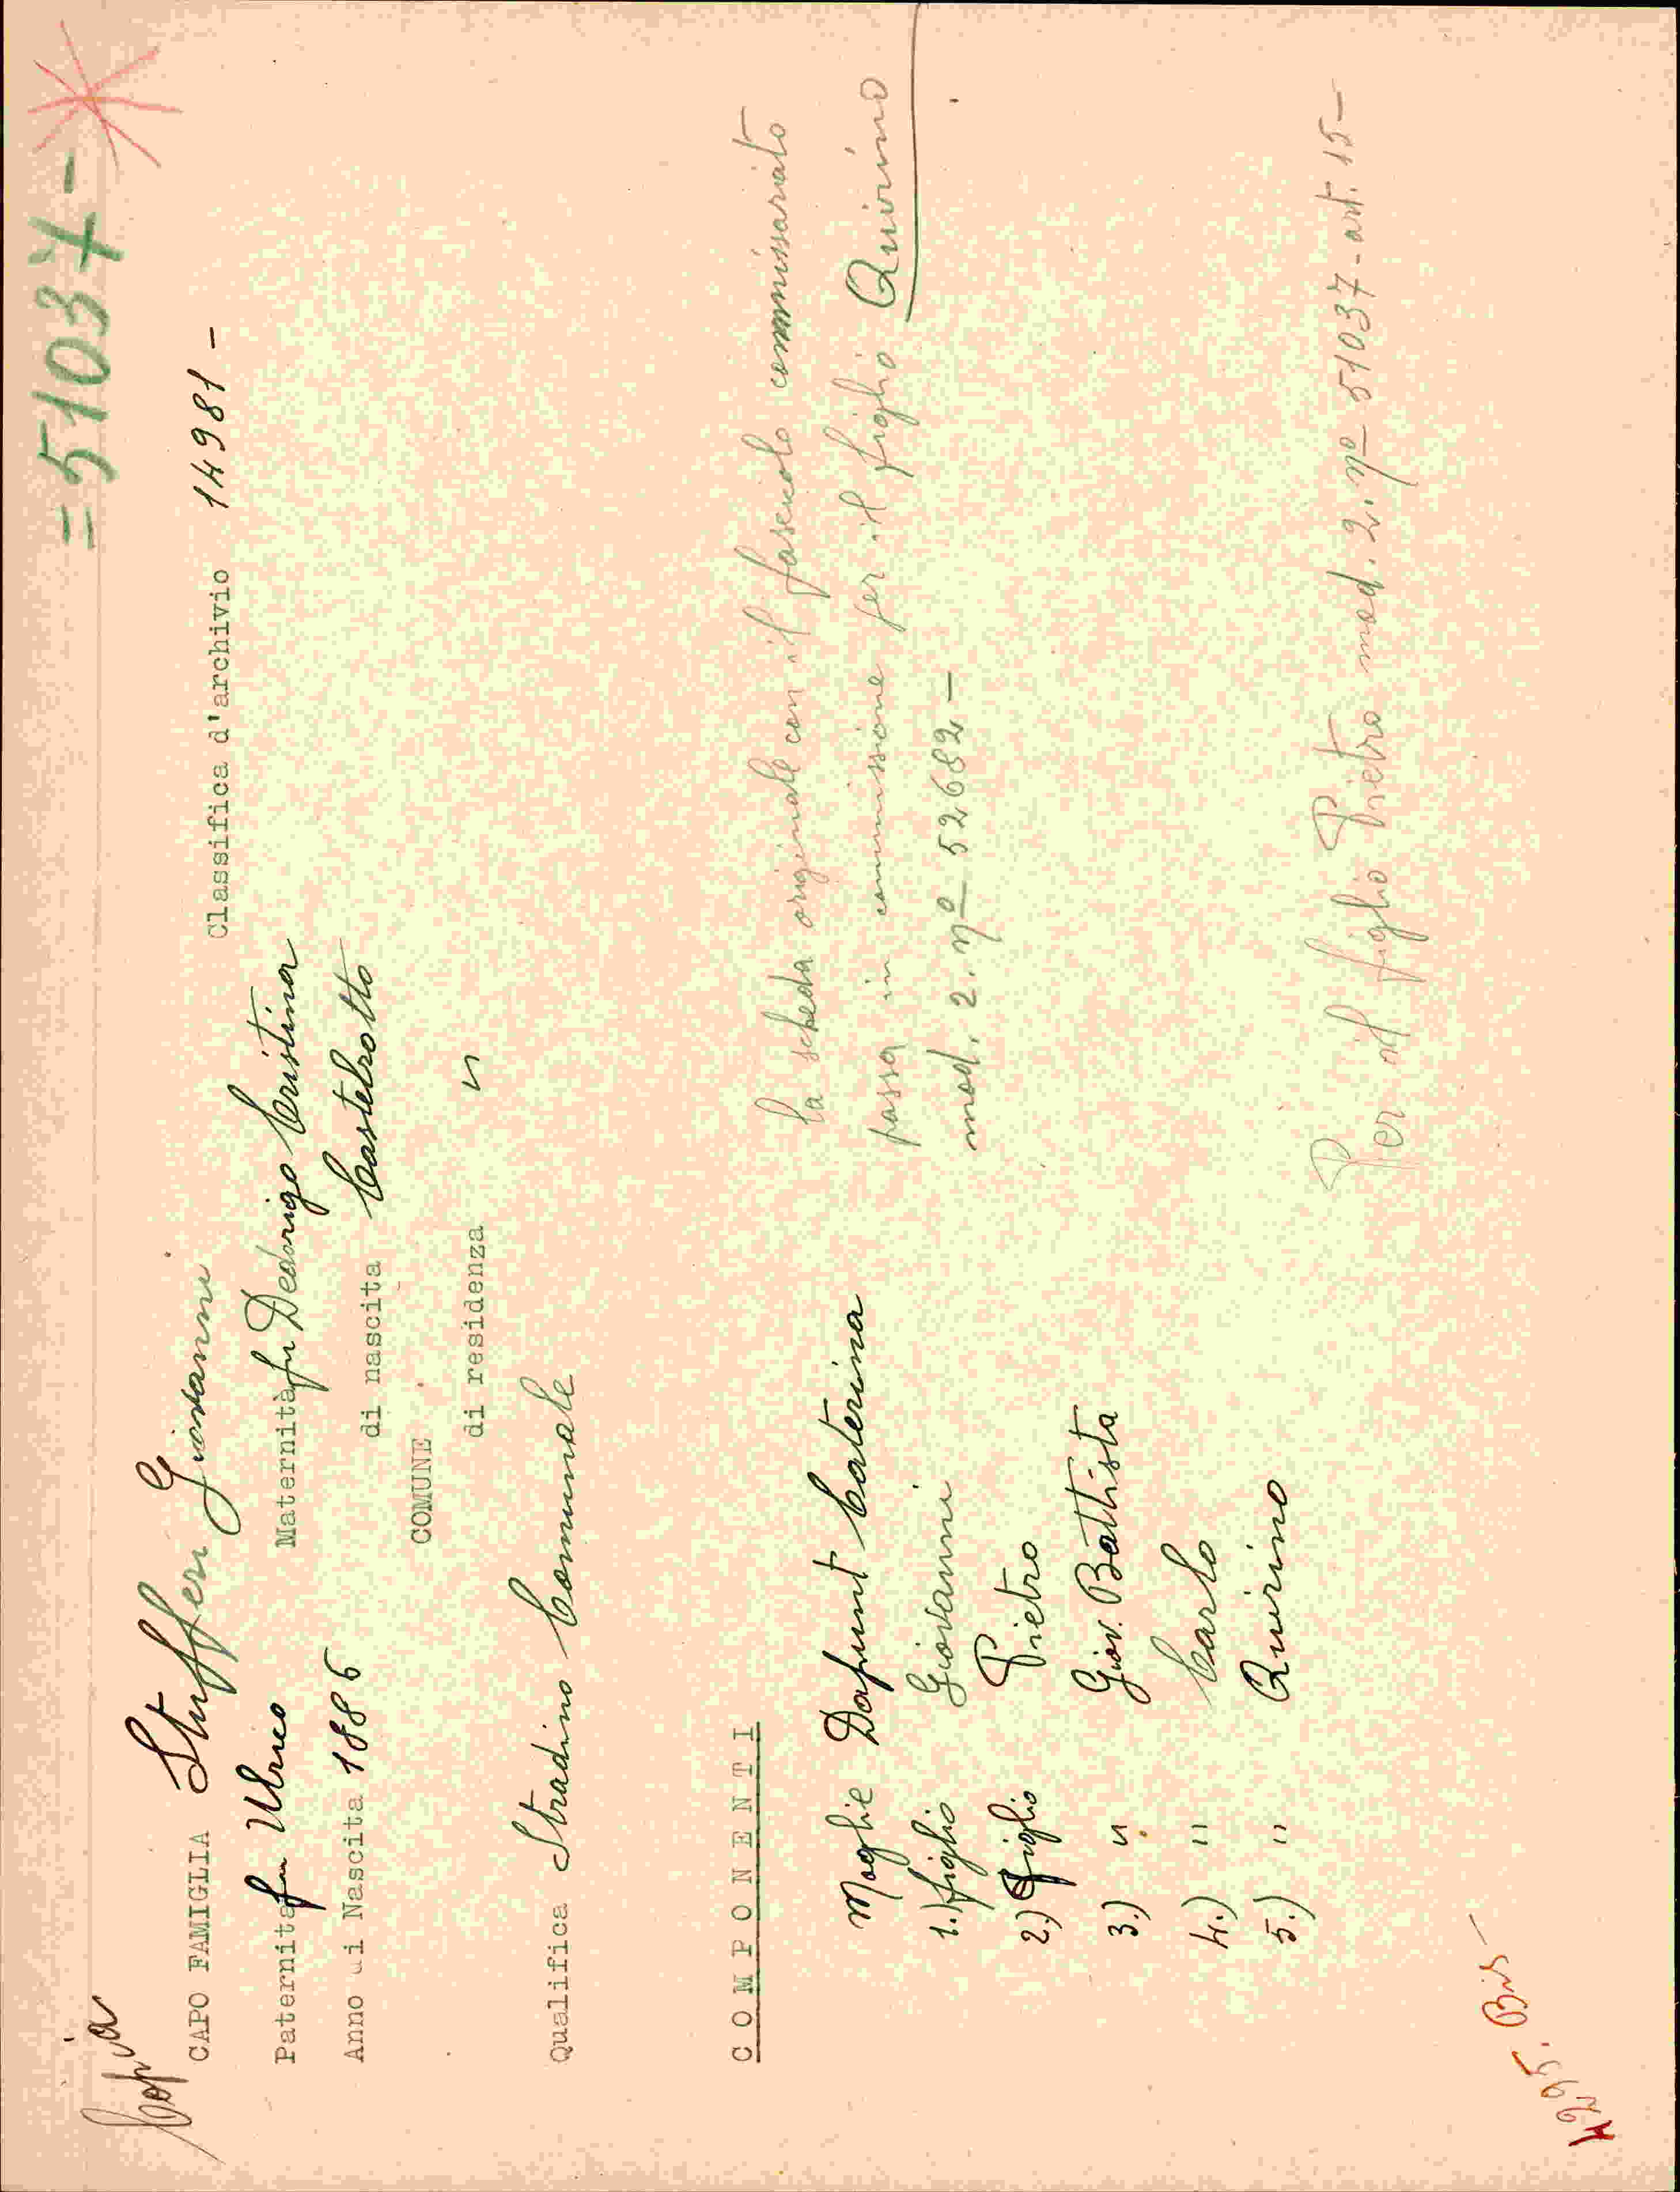 Copia
= 51037 -
CAPO FAMIGLIA Stufferi Giovanni
Classifica d'archivio 14981 -
Paternità fu Ulrico Maternità fu Deorigo Cristina
Anno di Nascita 1886 di nascita Castelrotto
COMUNE
di residenza "
Qualifica Stradino Comunale
COMPONENTI
La scheda originale con il fascicolo commissariato
passa in commissione per il figlio Quirino
mod. 2. nº 52682 -
Moglie Dapunt Caterina
1.) figlio Giovanni
2.) figlio Pietro
3.) " Giov. Battista
4.) " Carlo
5.) " Quirino
Per il figlio Pietro mod. 2. nº 51037 - art. 15 -
4295. Bis -